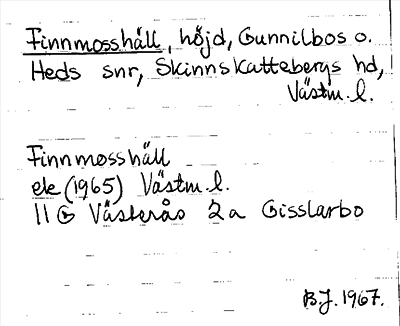 Finnmosshäll, höjd, Gunnilbos o.
Heds snr, Skinnskattebergs hd,
Västm. l.
Finnmosshäll
ek (1965) Västm. l.
11 G Västerås 2a Gisslarbo
B.J. 1967.